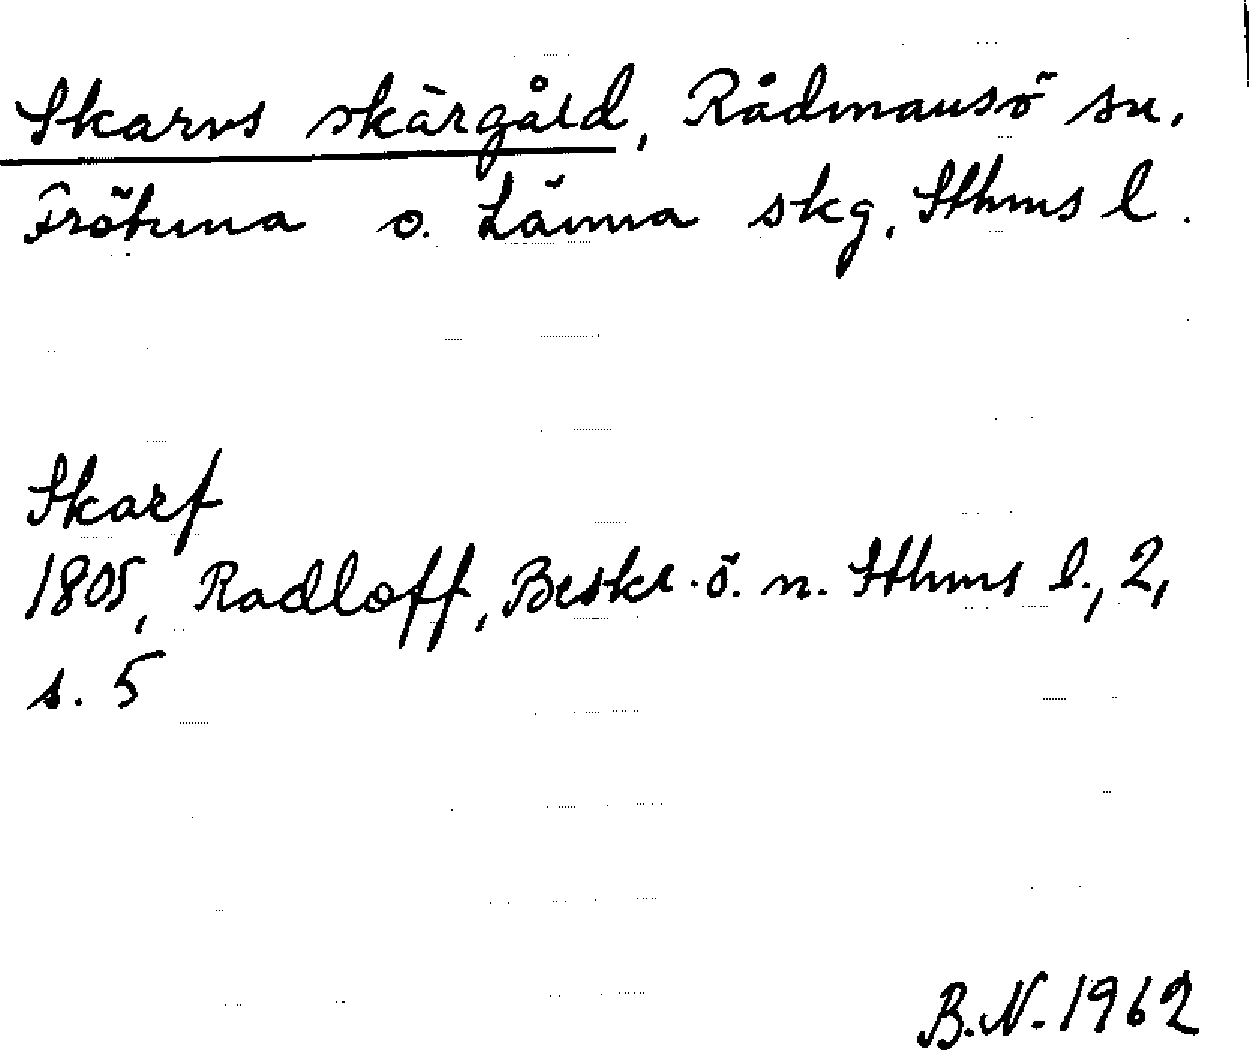 Skarvs skärgård, Rådmansö sn,
Frötuna o. Länna skg, Sthms l.
Skarf
1805, Radloff, Beskr. ö. n. Sthms l., 2,
s. 5
B.N. 1962